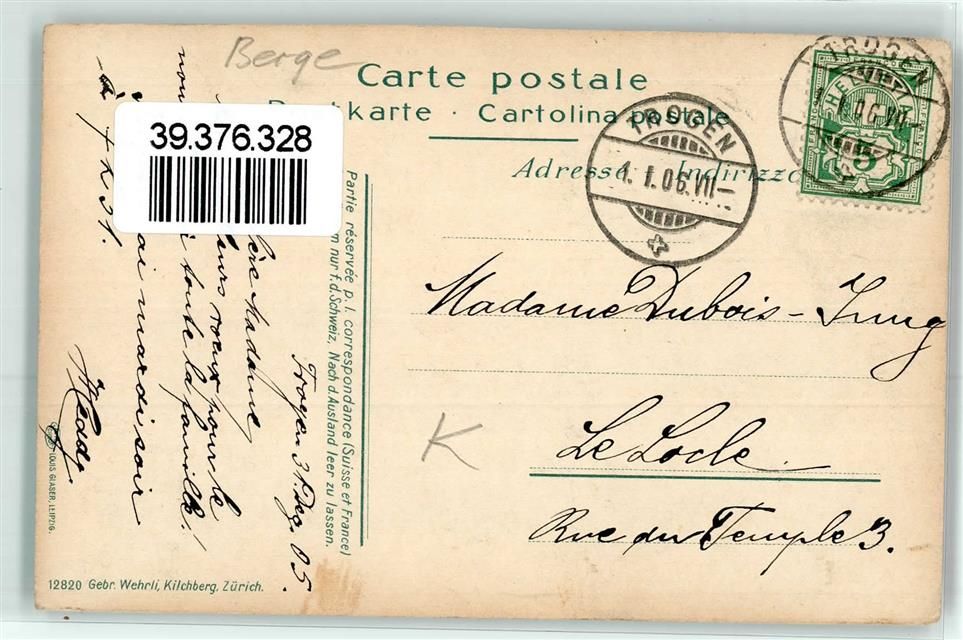 Berge
Carte postale
Postkarte · Cartolina postale
Adresse. Indirizzo
39.376.328
TROGEN
1. 1. 06. VII–
TROGEN
1. 1. 06. VII
HELVETIA
5
Madame Dubois - Jung
Le Locle.
Rue du Temple 3.
K
Partie réservée p. l. correspondance (Suisse et France)
nur f. d. Schweiz, Nach d. Ausland leer zu lassen.
Trogen 31. Dez. 05.
Madame
voeux pour le
toute la famille!
mardi soir
Heddy
LOUIS GLASER, LEIPZIG.
12820 Gebr. Wehrli, Kilchberg, Zürich.